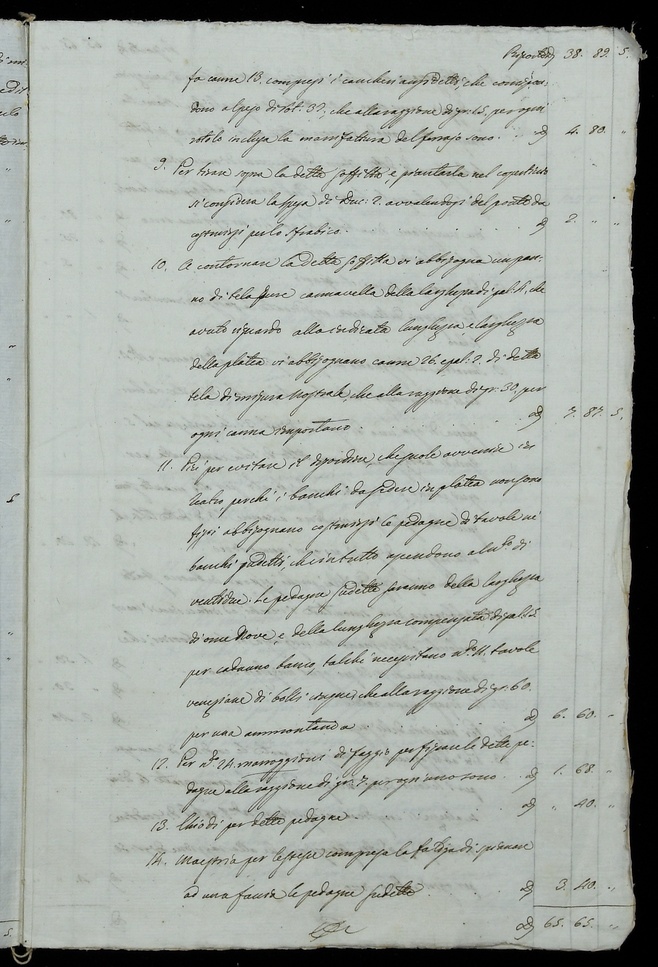 Riporto D. 38. 89. 5.
fa canne 13. compresi i cancheri anzidetti, che corrispon-
dono al peso di rot. 32, che alla raggione di gr. 15. per ogni
rotolo inclusa la manifattura del ferrajo sono . D. 4. 80. "
9. Per tirar sopra la detta soffitta, e piantarla nel
si considera la spesa di Duc. 2. avvalendosi del ponte da
costruirsi per lo Frabico . D. 2. " "
10. A contornare la detta soffitta vi abbisogna un pan-
no di tela pure cannavella della larghezza di pal. 4, che
avuto riguardo alla indicata lunghezza e larghezza
della platea vi abbisognano canne 26. e pal. 2. di detta
tela di misura nostrale che alla raggione di gr. 30. per
ogni canna importano . D. 7. 87. 5.
11. Più per evitare il disordine, che suole avvenire in
teatro, perchè i banchi da sedere in platea non sono
fissi abbisognano costruirsi le pedagne di tavole ne'
banchi sudetti, che in tutto ascendono al n.º di
ventidue. Le pedagne sudette saranno della larghezza
di once nove, e della lunghezza compensata di pal.
per caduno banco, talchè necessitano n.º 11. tavole
veneziane di bolli cinque, che alla raggione di gr. 60.
per una ammontano D. 6. 60. "
12. Per n.º 24. di faggio per fissare le dette pe-
dagne alla raggione di gr. 7. per ogni uno sono . D. 1. 68. "
13. Chiodi per dette pedagne . D. " 40. "
14. Maestria per le stesse compresa la fatiga di spianare
ad una faccia le pedagne sudette . D. 3. 40. "
D. 65. 65. "